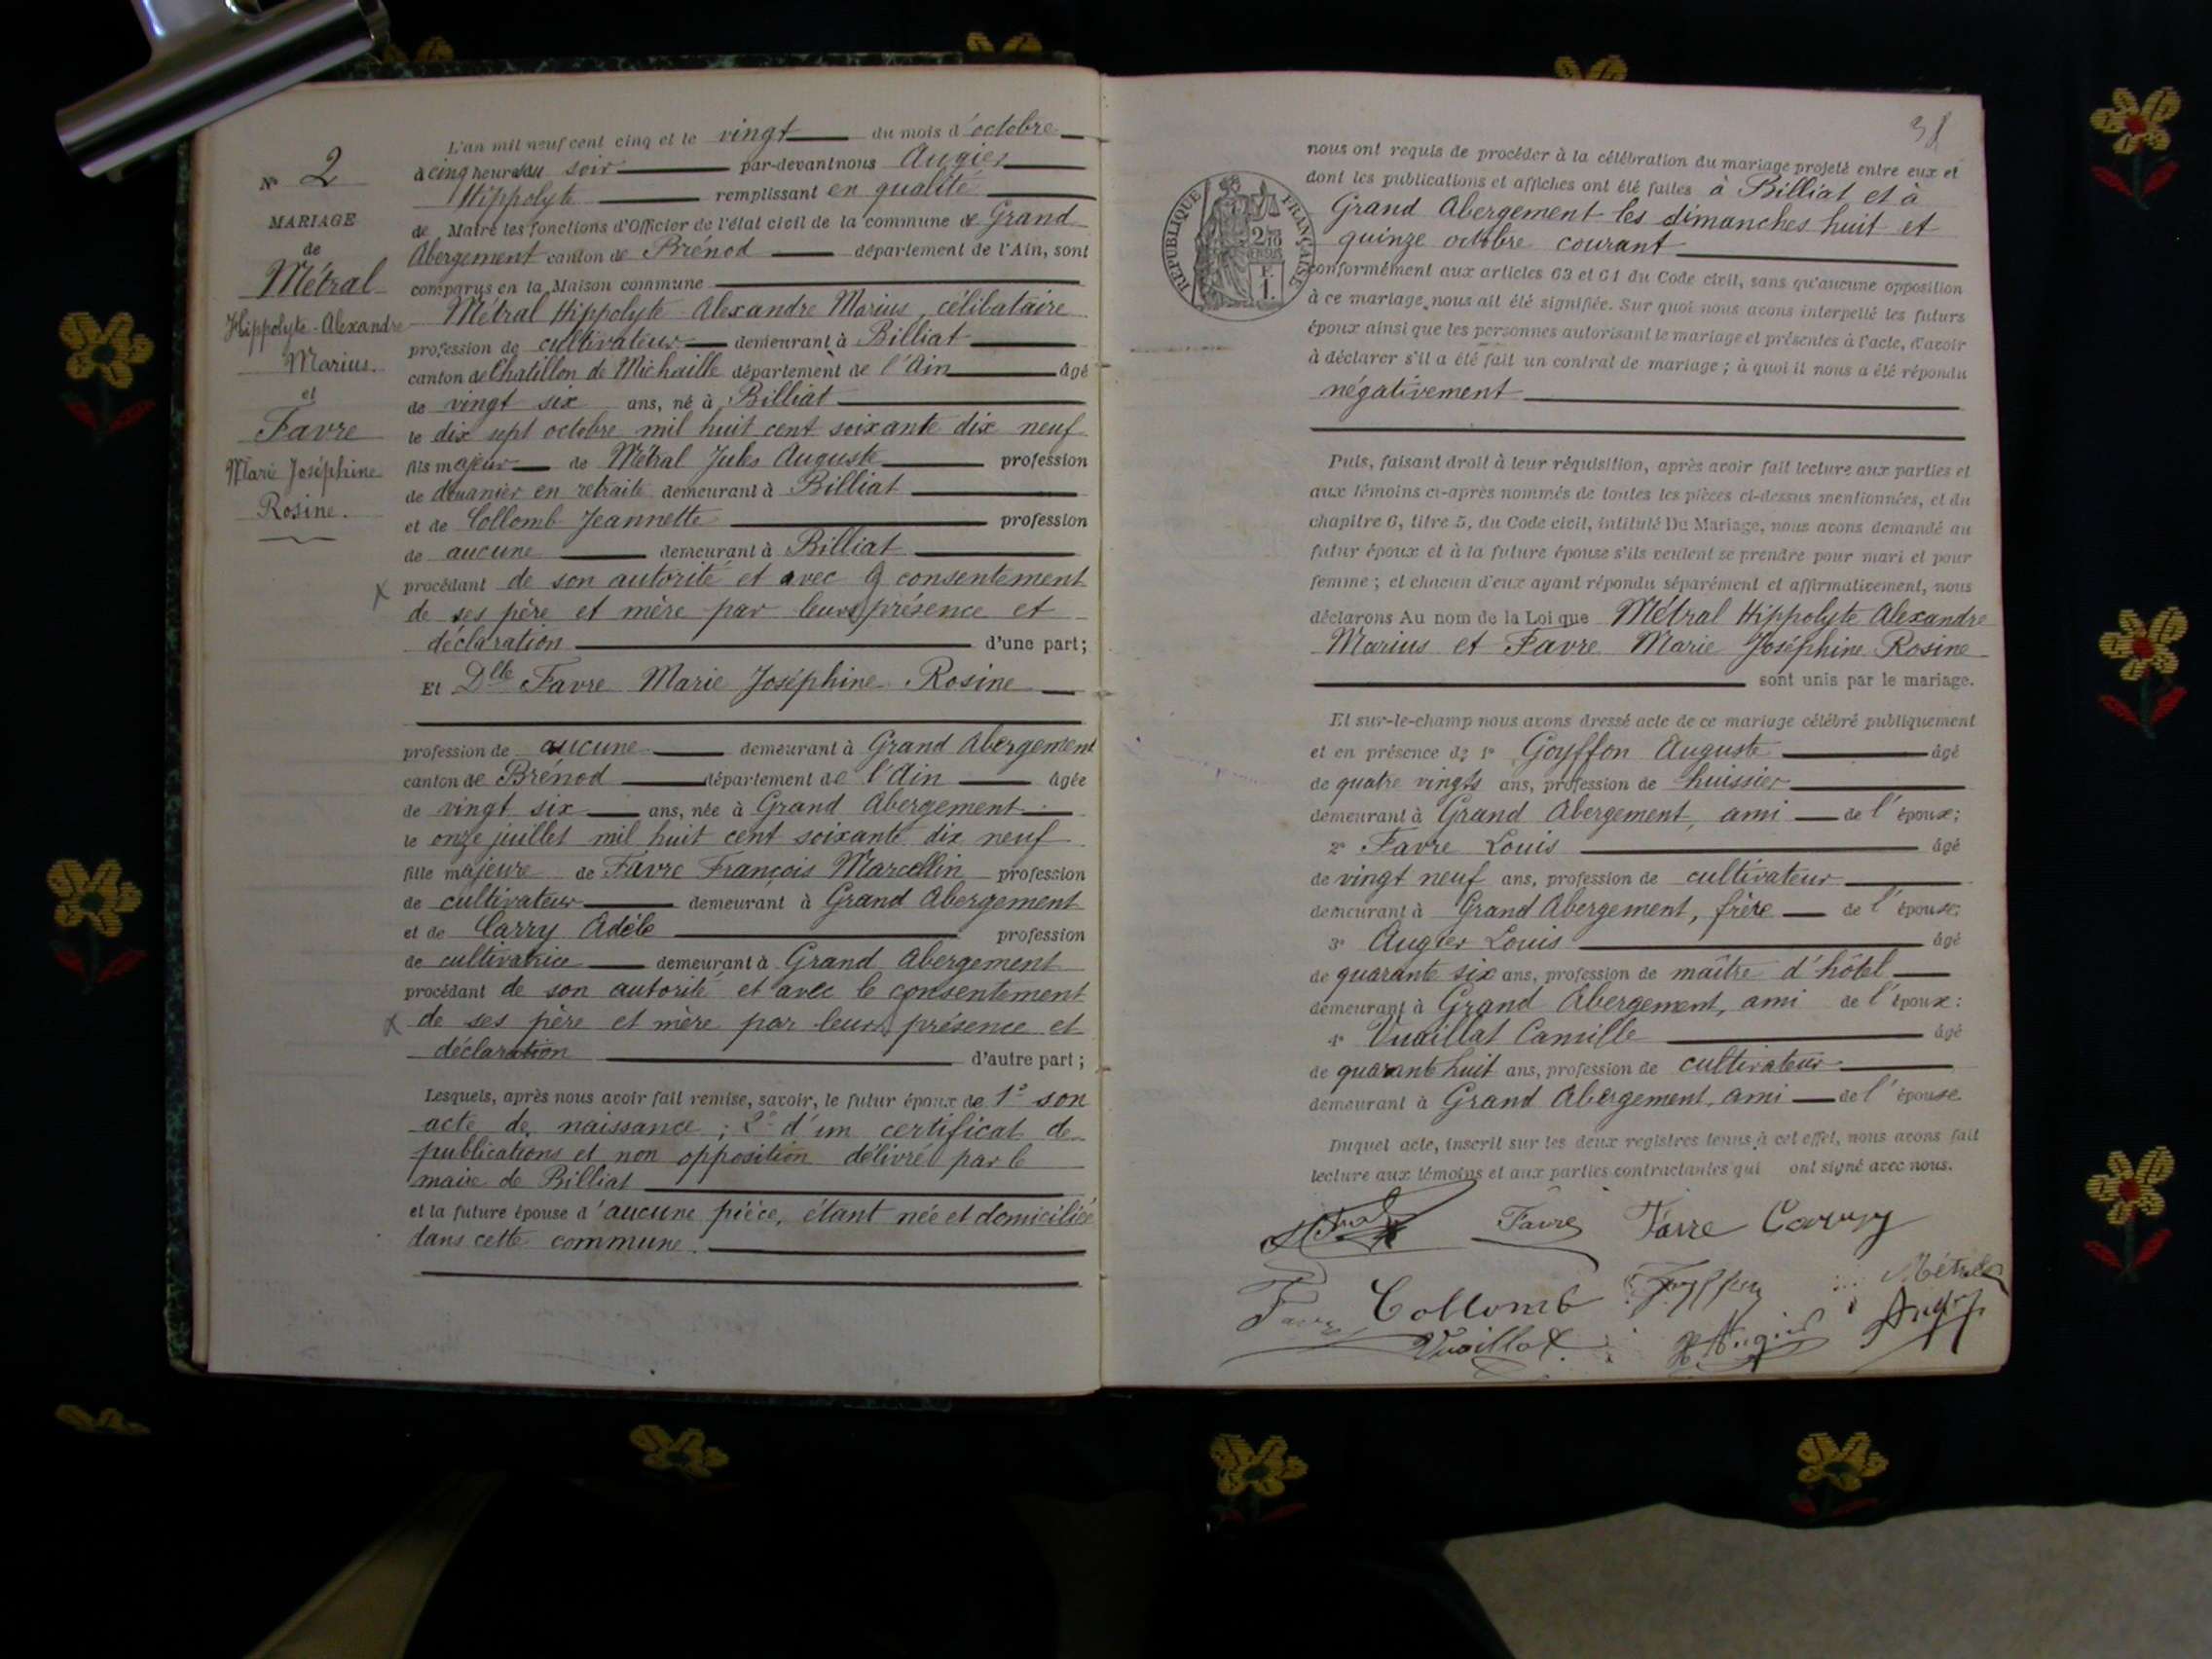 N° 2
MARIAGE
de
Métral
Hippolyte-Alexandre
Marius.
et
Favre
Marie Joséphine
Rosine.
L'an mil neuf cent cinq et le vingt du mois d'octobre
à cinq heures du soir par-devant nous Augier
Hippolyte remplissant en qualité
de Maire les fonctions d'Officier de l'état civil de la commune de Grand
Abergement canton de Brénod département de l'Ain, sont
comparus en la Maison commune
Métral Hippolyte Alexandre Marius, célibataire
profession de cultivateur demeurant à Billiat
canton de Chatillon de Michaille département de l'Ain âgé
de vingt six ans, né à Billiat
le dix sept octobre mil huit cent soixante dix neuf
fils majeur de Métral Jules Auguste profession
de douanier en retraite demeurant à Billiat
et de Collomb Jeannette profession
de aucune demeurant à Billiat
procédant de son autorité et avec consentement
de ses père et mère par leurs présence et
déclaration d'une part;
Et Dlle Favre Marie Joséphine Rosine
profession de aucune demeurant à Grand Abergement
canton de Brénod département de l'Ain âgée
de vingt six ans, née à Grand Abergement
le onze juillet mil huit cent soixante dix neuf
fille majeure de Favre François Marcellin profession
de cultivateur demeurant à Grand Abergement
et de Carry Adèle profession
de cultivatrice demeurant à Grand Abergement
procédant de son autorité et avec le consentement
de ses père et mère par leurs présence et
déclaration d'autre part;
Lesquels, après nous avoir fait remise, savoir, le futur époux de 1° son
acte de naissance; 2° d'un certificat de
publications et non opposition délivré par le
maire de Billiat
et la future épouse d'aucune pièce, étant née et domiciliée
dans cette commune.
38
RÉPUBLIQUE FRANÇAISE
2/10
EN SUS
F.
1.
nous ont requis de procéder à la célébration du mariage projeté entre eux et
dont les publications et affiches ont été faites à Billiat et à
Grand Abergement les dimanches huit et
quinze octobre courant
conformément aux articles 63 et 64 du Code civil, sans qu'aucune opposition
à ce mariage nous ait été signifiée. Sur quoi nous avons interpellé les futurs
époux ainsi que les personnes autorisant le mariage et présentes à l'acte, d'avoir
à déclarer s'il a été fait un contrat de mariage; à quoi il nous a été répondu
négativement
Puis, faisant droit à leur réquisition, après avoir fait lecture aux parties et
aux témoins ci-après nommés de toutes les pièces ci-dessus mentionnées, et du
chapitre 6, titre 5, du Code civil, intitulé Du Mariage, nous avons demandé au
futur époux et à la future épouse s'ils veulent se prendre pour mari et pour
femme; et chacun d'eux ayant répondu séparément et affirmativement, nous
déclarons Au nom de la Loi que Métral Hippolyte Alexandre
Marius et Favre Marie Joséphine Rosine
sont unis par le mariage.
Et sur-le-champ nous avons dressé acte de ce mariage célébré publiquement
et en présence de 1° Goyffon Auguste âgé
de quatre vingts ans, profession de huissier
demeurant à Grand Abergement, ami de l'époux;
2° Favre Louis âgé
de vingt neuf ans, profession de cultivateur
demeurant à Grand Abergement, frère de l'épouse;
3° Augier Louis âgé
de quarante six ans, profession de maître d'hôtel
demeurant à Grand Abergement, ami de l'époux:
4° Vuaillat Camille âgé
de quarante huit ans, profession de cultivateur
demeurant à Grand Abergement, ami de l'épouse
Duquel acte, inscrit sur les deux registres tenus à cet effet, nous avons fait
lecture aux témoins et aux parties contractantes qui ont signé avec nous.
Favre Favre Carry
Métral
Favre Collomb Goyffon
Vuaillat H Augier Augier